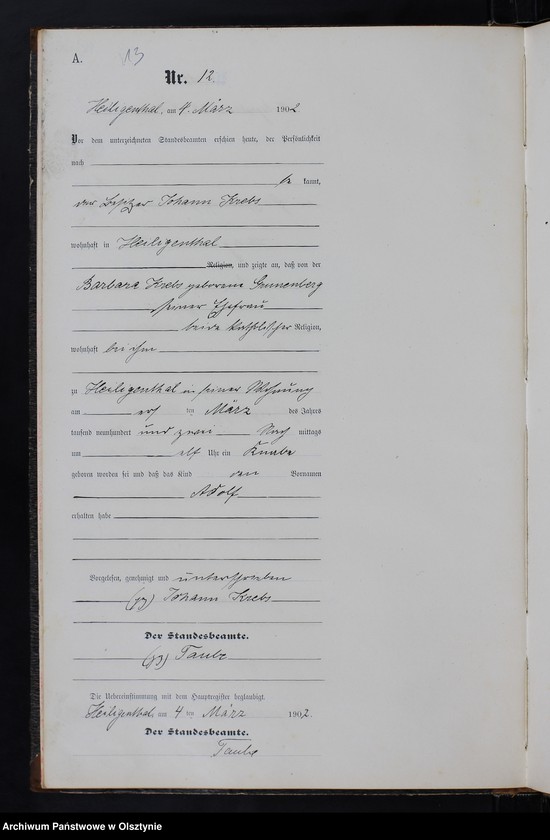 A. 13
Nr. 12.
Heiligenthal, am 4. März 1902.
Vor dem unterzeichneten Standesbeamten erschien heute, der Persönlichkeit
nach
be kannt,
der Besitzer Johann Krebs
wohnhaft in Heiligenthal
Religion, und zeigte an, daß von der
Barbara Krebs geborene
seiner Ehefrau
beide katholischer Religion,
wohnhaft bei ihm
zu Heiligenthal in seiner Wohnung
am ten März des Jahres
tausend neunhundert und zwei Nach mittags
um elf Uhr ein Knabe
geboren worden sei und daß das Kind den Vornamen
Adolf
erhalten habe
Vorgelesen, genehmigt und unterschrieben
(gz) Johann Krebs
Der Standesbeamte.
(gz) Taube
Die Uebereinstimmung mit dem Hauptregister beglaubigt.
Heiligenthal, am 4 ten März 1902.
Der Standesbeamte.
Taube
Archiwum Państwowe w Olsztynie